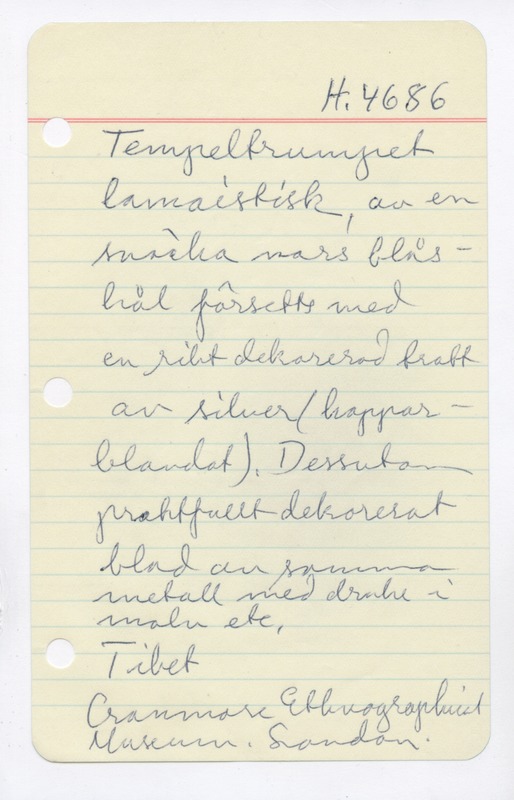 H.4686
Tempeltrumpet
lamaistisk, av en
snäcka vars blås-
hål försetts med
en rikt dekorerad tratt
av silver (koppar-
blandat). Dessutom
praktfullt dekorerat
blad av samma
metall med drake i
moln etc.
Tibet
Cranmore Ethnographical
Museum. London.